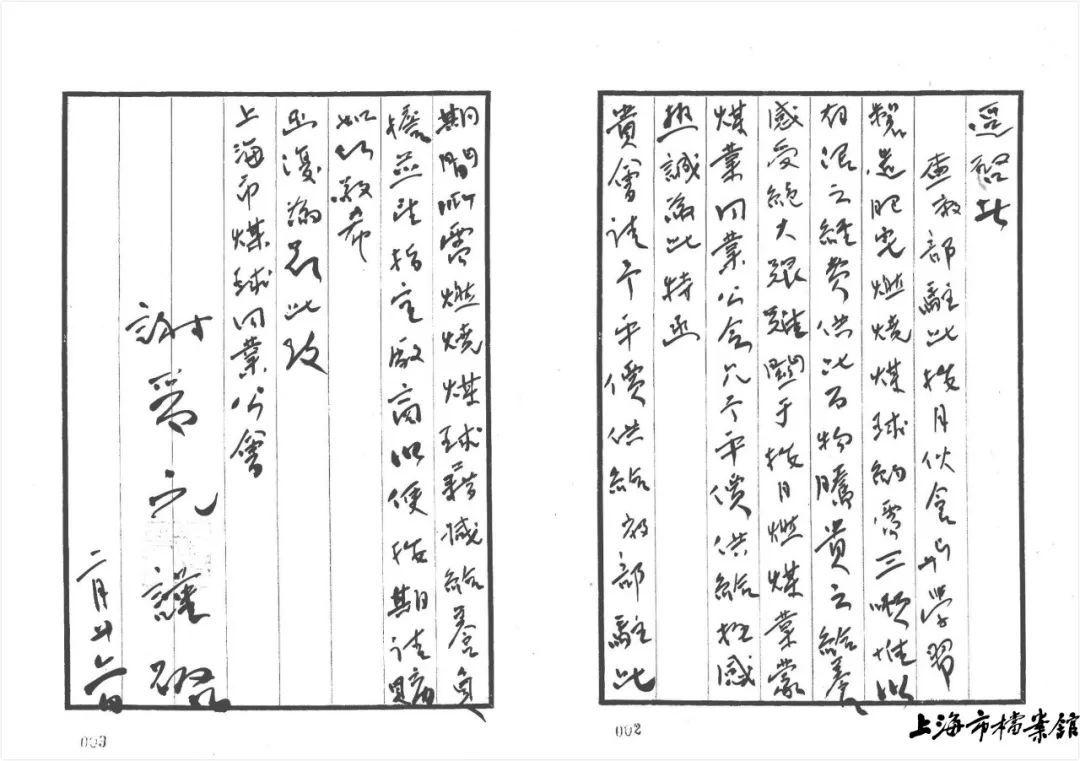 逕啓者
查敝部駐此按月伙食及學習
製造肥皂燃燒煤球約需三噸惟以
有限之經費供此百物騰貴之給養
感受絕大艱難關于按月燃煤業蒙
煤業同業公會允予平價供給極感
熱誠為此特函
貴會請予平價供給敝部駐此
期間所需燃燒煤球藉減給養負
擔並請指定廠商以便按期請購
如何敬希
函復為荷此致
上海市煤球同業公會
謝晉元謹啓
二月廿六日
002
003
上海市檔案館